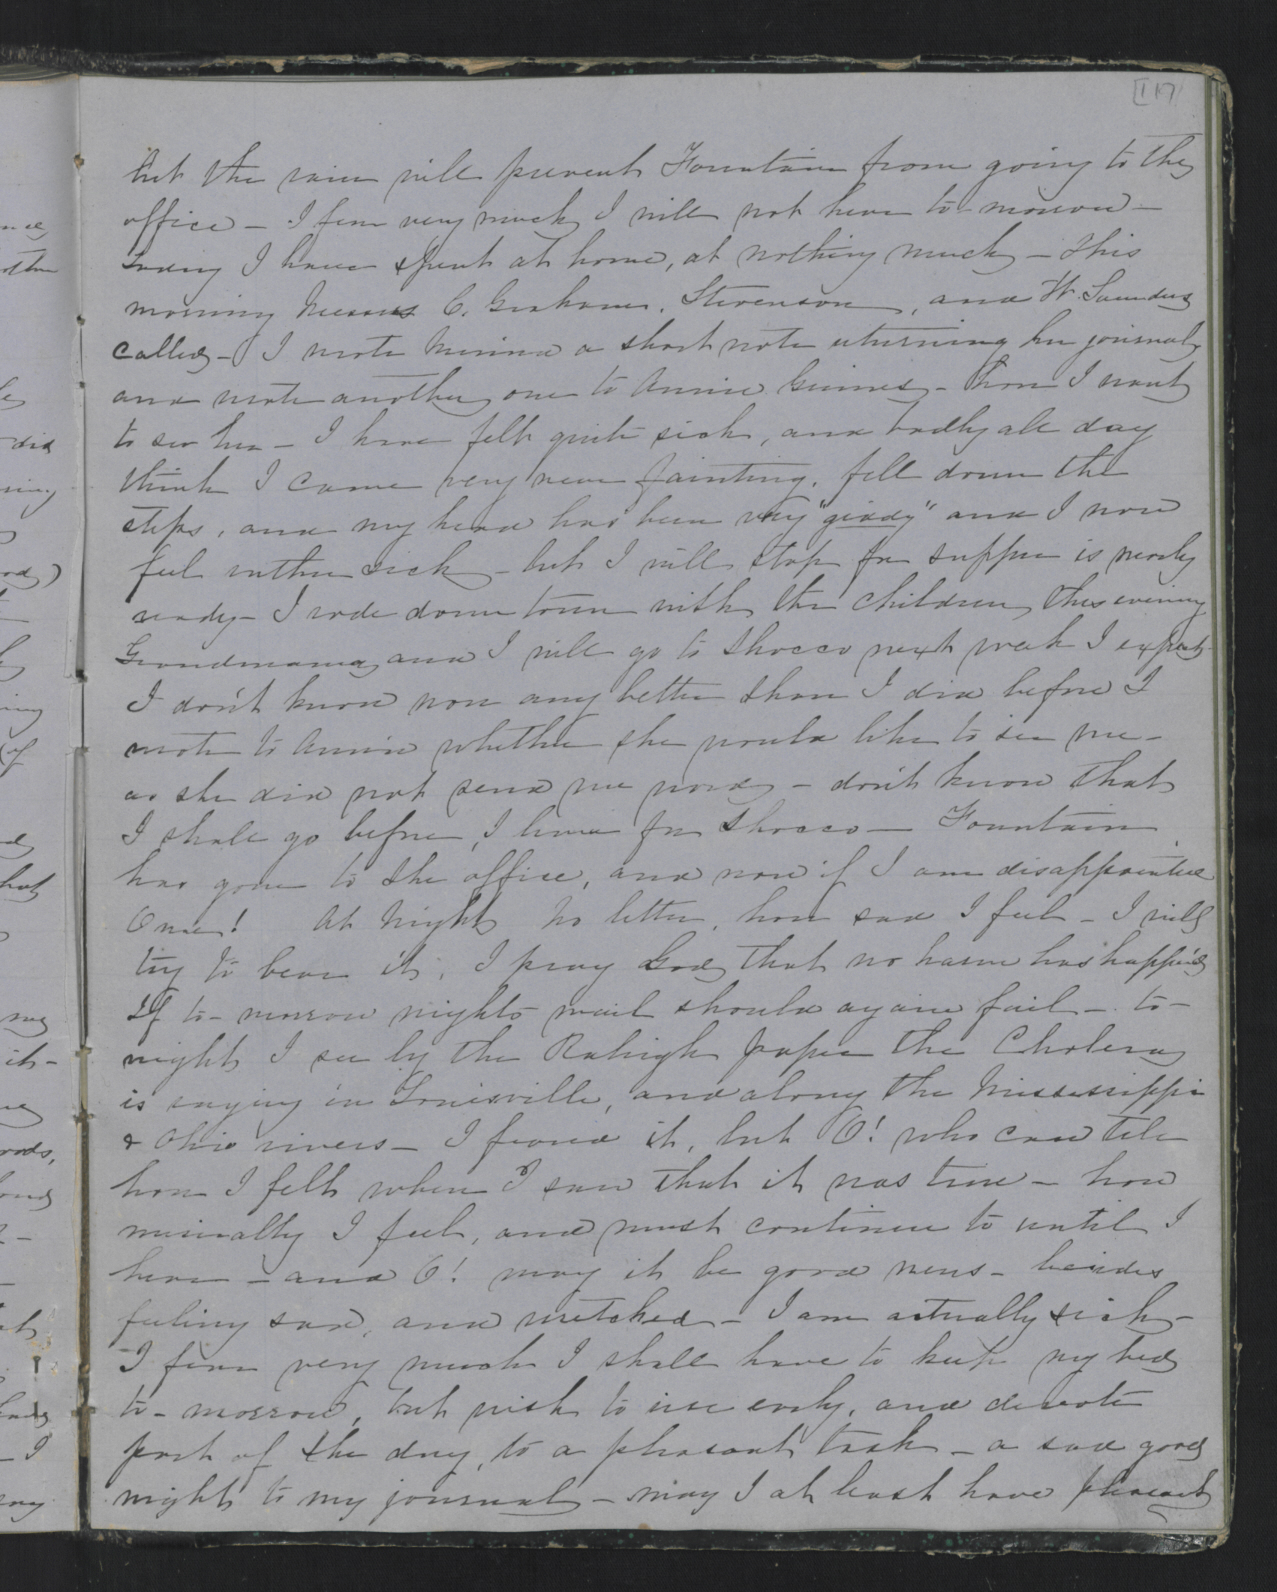 [117]
but the rain will prevent Fountain from going to the
office - I fear very much I will not hear to-morrow -
today I have spent at home, at nothing much - This
morning Messrs C. Graham, Stevenson, and W. Saunders
called - I wrote Minna a short note returning her journal,
and wrote another one to Annie Grimes - how I want
to see her - I have felt quite sick, and badly all day
think I came very near fainting, fell down the
steps, and my head has been very "giddy" and I now
feel rather sick - but I will stop for supper is nearly
ready - I rode down town with the children, this evening
Grandmama, and I will go to Shocco next week I expect
I don't know now any better than I did before I
wrote to Annie whether she would like to see me -
as she did not send me word - don't know that
I shall go before, I leave for Shocco - Fountain
has gone to the office, and now if I am disappointed
Once! At Night No letter, how sad I feel - I will
try to bear it, I pray God, that no harm has happened
If to-morrow night's mail should again fail - to-
night I see by the Raleigh paper the Cholera
is raging in Louisville, and along the Mississippi
& Ohio rivers - I feared it, but O! who can tell
how I felt when I saw that it was true - how
miserably I feel, and must continue to until I
hear - and O! may it be good news - besides
feeling sad, and wretched - I am actually sick -
I fear very much I shall have to keep my bed
to-morrow, but wish to rise early, and devote
part of the day, to a pleasant task - a sad good
night to my journal - may I at least have pleasant